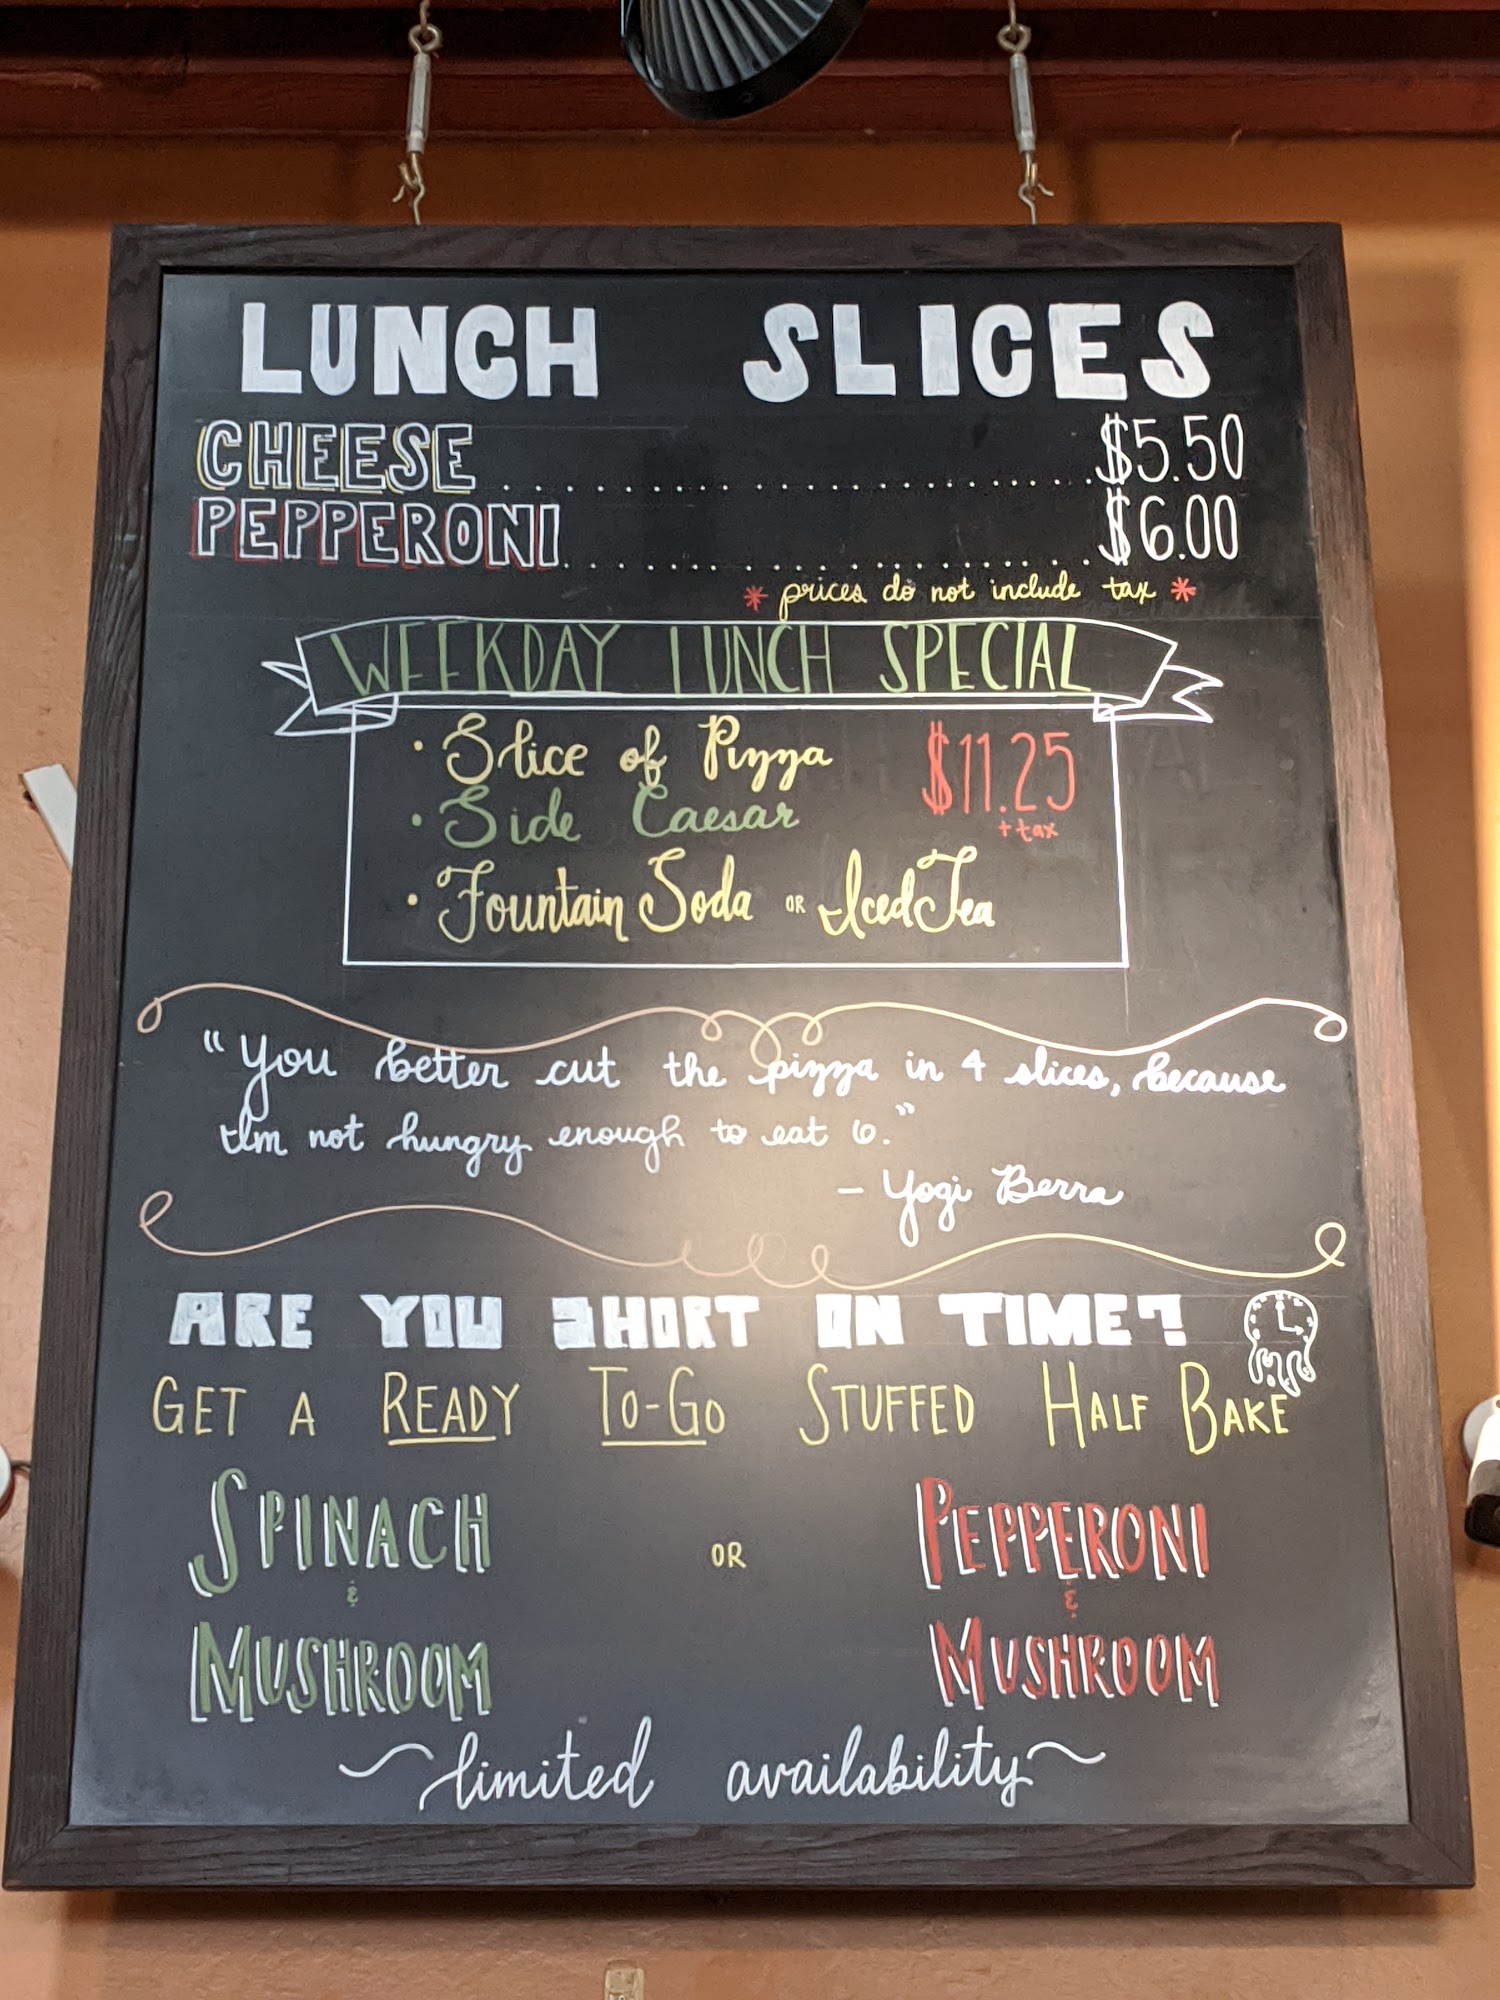 LUNCH SLICES
CHEESE ........................ $5.50
PEPPERONI ........................ $6.00
* prices do not include tax *
WEEKDAY LUNCH SPECIAL
• Slice of Pizza $11.25
• Side Caesar + tax
• Fountain Soda OR Iced Tea
"You better cut the pizza in 4 slices, because
I'm not hungry enough to eat 6."
- Yogi Berra
ARE YOU SHORT ON TIME?
GET A READY TO-GO STUFFED HALF BAKE
SPINACH OR PEPPERONI
& &
MUSHROOM MUSHROOM
~limited availability~